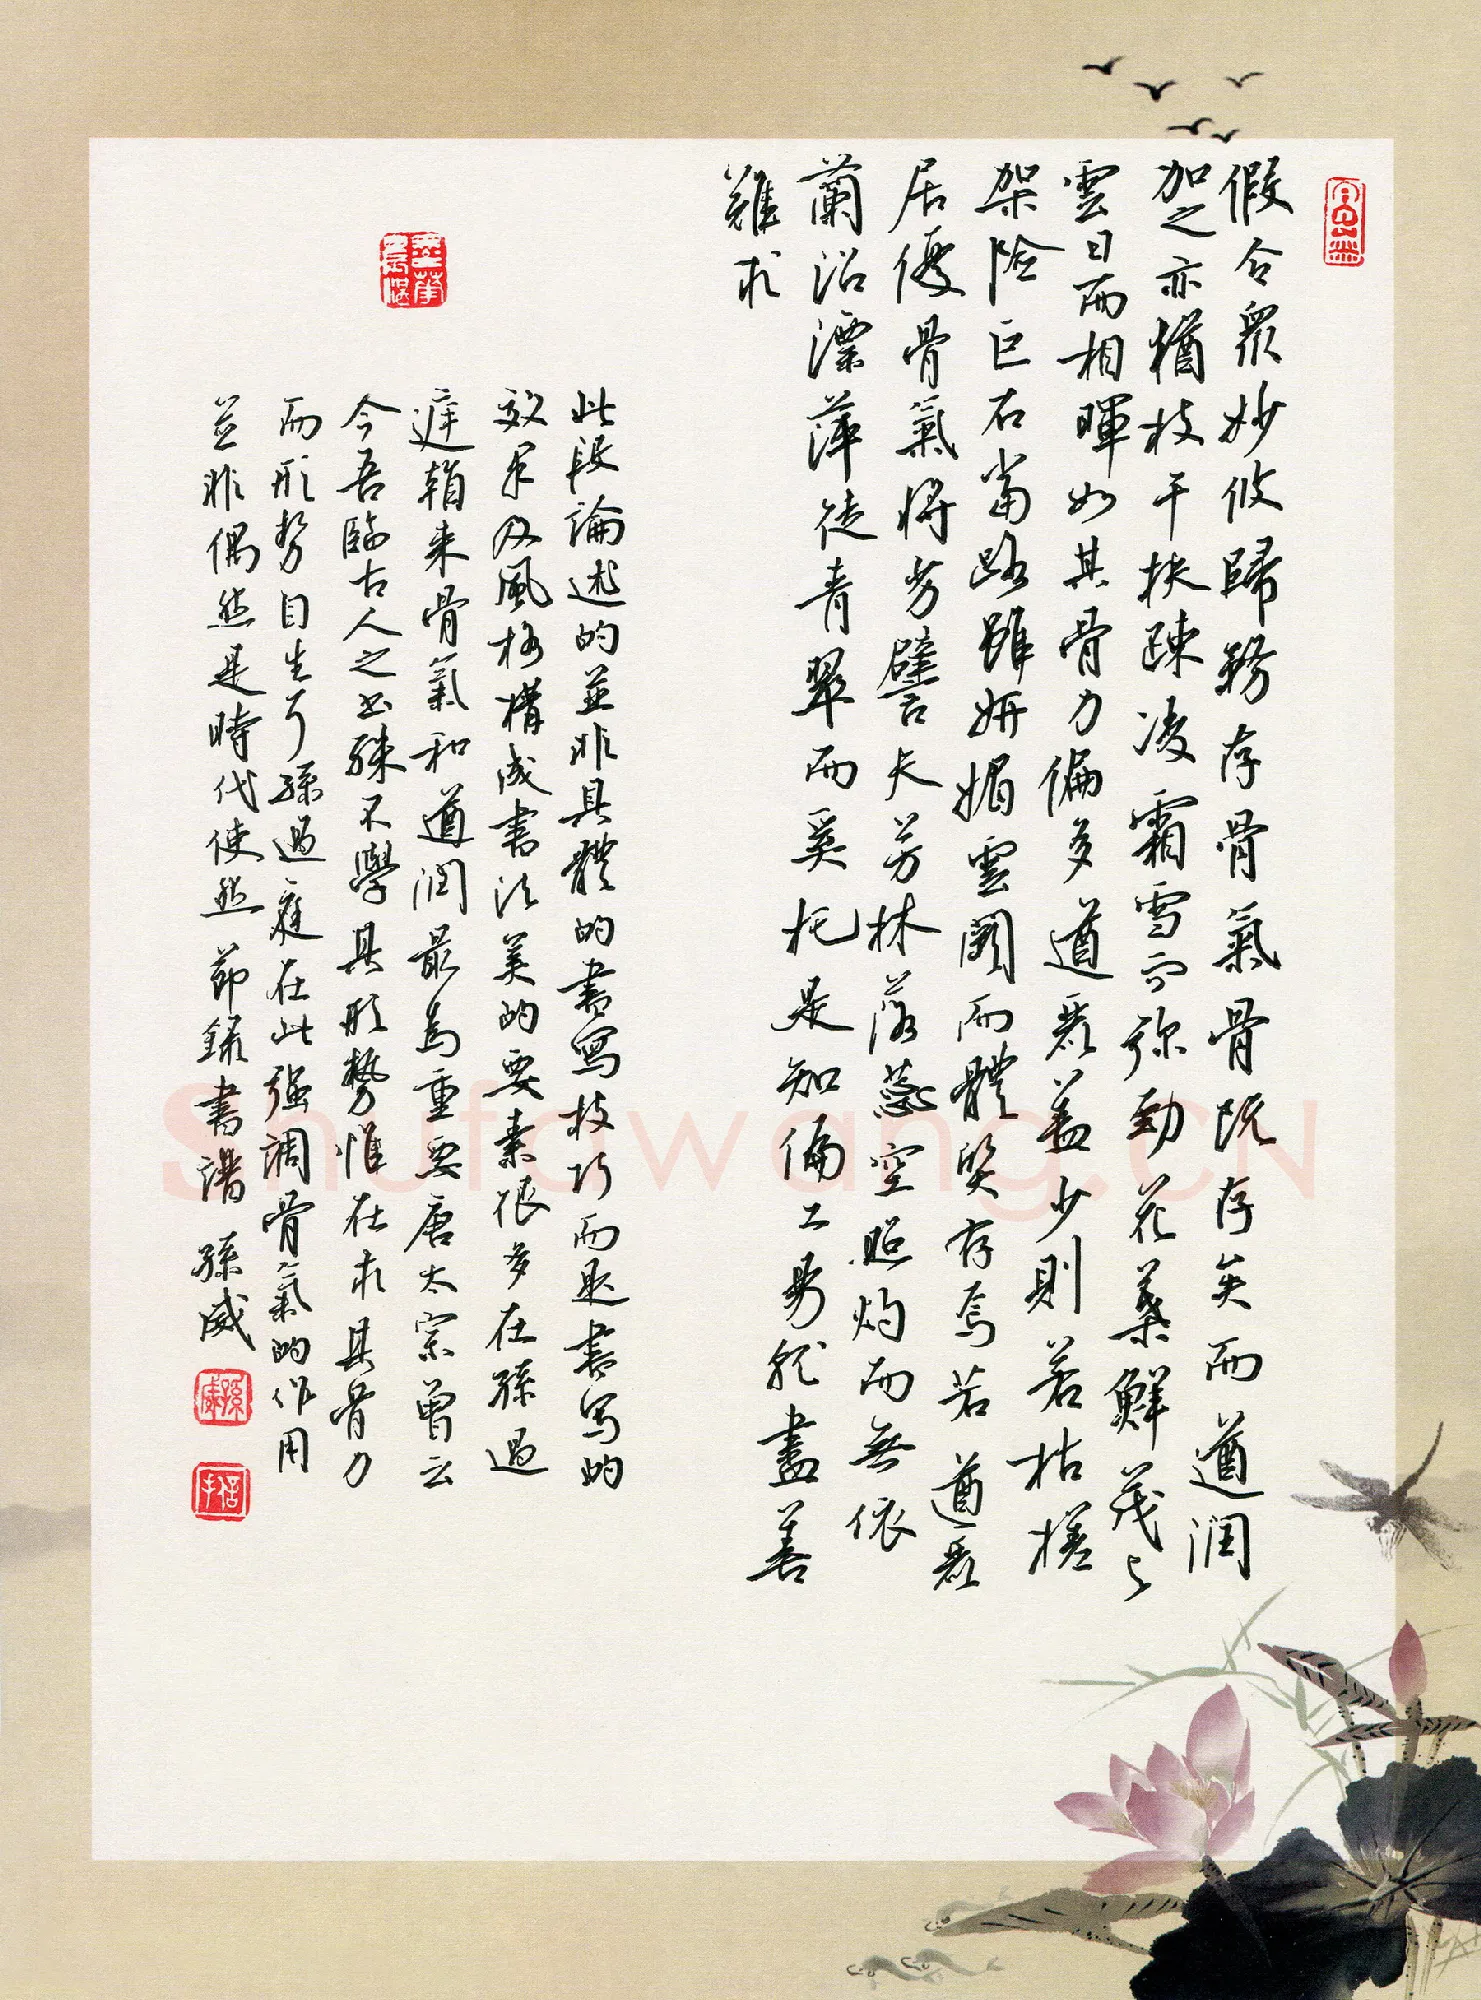 假令衆妙攸歸務存骨氣骨既存矣而遒潤
加之亦猶枝干扶疎凌霜雪而弥勁花葉鮮茂与
雲日而相暉如其骨力偏多遒麗蓋少則若枯槎
架險巨石當路雖妍媚雲闕而體質存焉若遒麗
居優骨氣將劣譬夫芳林落蕊空照灼而無依
蘭沼漂萍徒青翠而奚托是知偏工易就盡善
難求
此段論述的並非具體的書寫技巧而是書写的
效果及風格構成書法美的要素很多在孫過
庭看来骨氣和遒潤最為重要唐太宗曾云
今吾臨古人之書殊不學其形勢惟在求其骨力
而形勢自生耳孫過庭在此强調骨氣的作用
並非偶然是時代使然 節錄書譜 孫威
孫威
Shufawang.CN